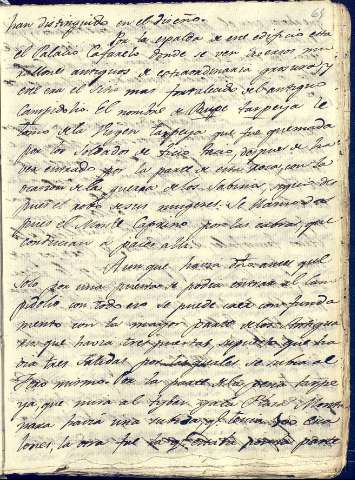 68
han distinguido en el diseño.
Por la espalda de este edificio está
el Palacio Cafareli donde se ven diversos mu
rallones antiguos de extraordinaria grosura, y
este era el sitio mas fortalecido del antiguo
Campidolio. El nombre de Rupe Tarpeya le
tomó de la Virgen Tarpeya que fue quemada
por los soldados de Tito Tacio, despues de ha
ver entrado por la parte de esta Roca, con la
ocasion de la guerra de los Sabinos, que
despues el robo de sus mugeres. Se llamó des
pues el Monte Caprino por las cabras, que
continuan a pacer alli.
Aunque havia que
solo por una puerta se podia entrar al Cam
pidolio con todo eso se puede creer con funda
mento con la mayor parte de los Antiqua
rios que havia tres puertas, supuesto que ha
via tres salidas por las quales se subia al
sitio mismo. En la parte de la peña Tarpe
ya, que mira al Tyber, y ala Plaza Monta
nara havia una subida de
lones, la otra fue la parte